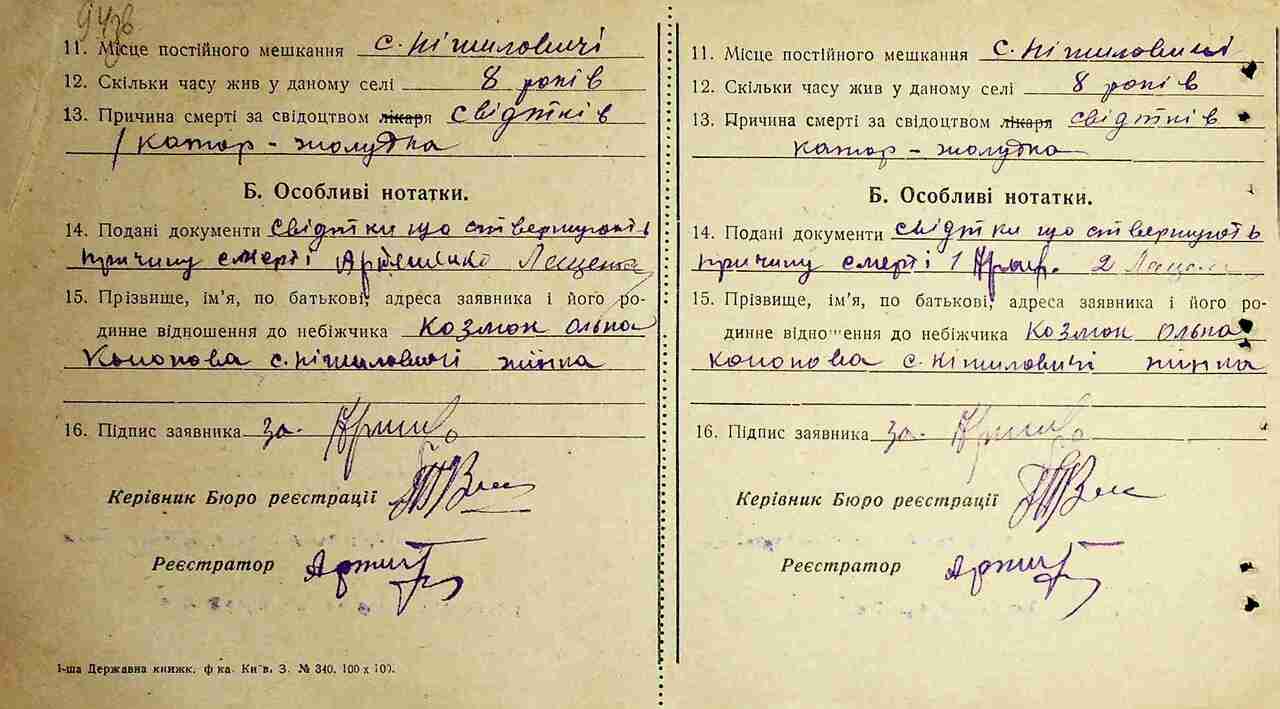 11. Місце постійного мешкання с. Ніжиловичі
12. Скільки часу жив у даному селі 8 років
13. Причина смерті за свідоцтвом лікаря свідтків
катар - жолудка
Б. Особливі нотатки.
14. Подані документи свідтки що ствержують
причину смерті
15. Прізвище, ім'я, по батькові, адреса заявника і його ро-
динне відношення до небіжчика Козмон Ольна
Кононова с. Ніжиловичі жінка
16. Підпис заявника за.
Керівник Бюро реєстрації
Реєстратор
1-ша Державна книжк. ф-ка. Київ. З. № 340. 100 х 100.
11. Місце постійного мешкання с. Ніжиловичі
12. Скільки часу жив у даному селі 8 років
13. Причина смерті за свідоцтвом лікаря свідтків
катар - жолудка
Б. Особливі нотатки.
14. Подані документи свідтки що ствержують
причину смерті 1 2
15. Прізвище, ім'я, по батькові, адреса заявника і його ро-
динне відношення до небіжчика Козмон Ольна
Кононова с. Ніжиловичі жінка
16. Підпис заявника за.
Керівник Бюро реєстрації
Реєстратор